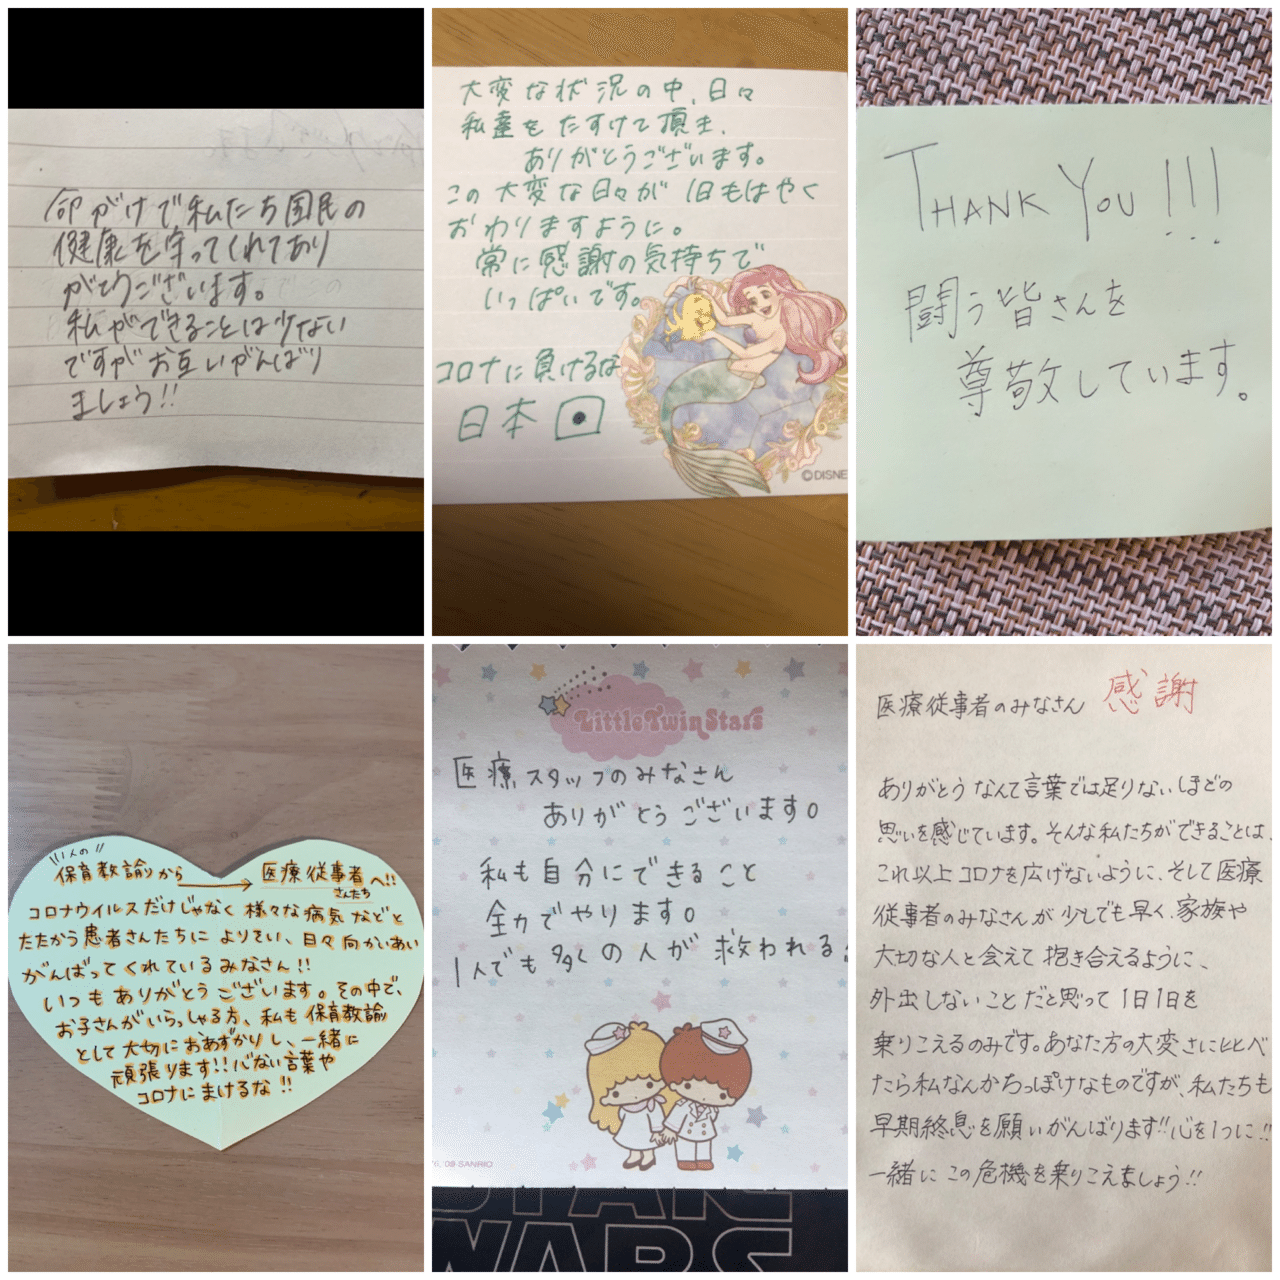 命がけで私たち国民の
健康を守ってくれており
がとうございます。
私ができることは少ない
ですがお互いがんばり
ましょう!!
大変な状況の中、日々
私達をたすけて頂き、
ありがとうございます。
この大変な日々が1日もはやく
おわりますように。
常に感謝の気持ちで
いっぱいです。
コロナに負けるな
日本
©DISNE
THANK YOU!!!
闘う皆さんを
尊敬しています。
1人の
保育教諭から→医療従事者へ!!
さんたち
コロナウイルスだけじゃなく様々な病気などと
たたかう患者さんたちによりそい、日々向かいあい
がんばってくれているみなさん!!
いつもありがとうございます。その中で、
お子さんがいらっしゃる方、私も保育教諭
として大切におあずかりし、一緒に
頑張ります!!心ない言葉や
コロナにまけるな!!
Little Twin Stars
医療スタッフのみなさん
ありがとうございます。
私も自分にできること
全力でやります。
1人でも多くの人が救われる
'76, '09 SANRIO
STAR
WARS
医療従事者のみなさん 感謝
ありがとうなんて言葉では足りないほどの
思いを感じています。そんな私たちができることは、
これ以上コロナを広げないように、そして医療
従事者のみなさんが少しでも早く、家族や
大切な人と会えて抱き合えるように、
外出しないことだと思って1日1日を
乗りこえるのみです。あなた方の大変さに比べ
たら私なんかちっぽけなものですが、私たちも
早期終息を願いがんばります!!心を1つに!!
一緒にこの危機を乗りこえましょう!!